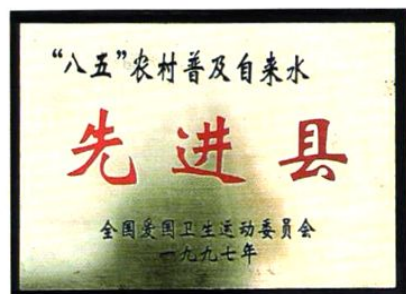 “八五”农村普及自来水
先进县
全国爱国卫生运动委员会
一九九七年